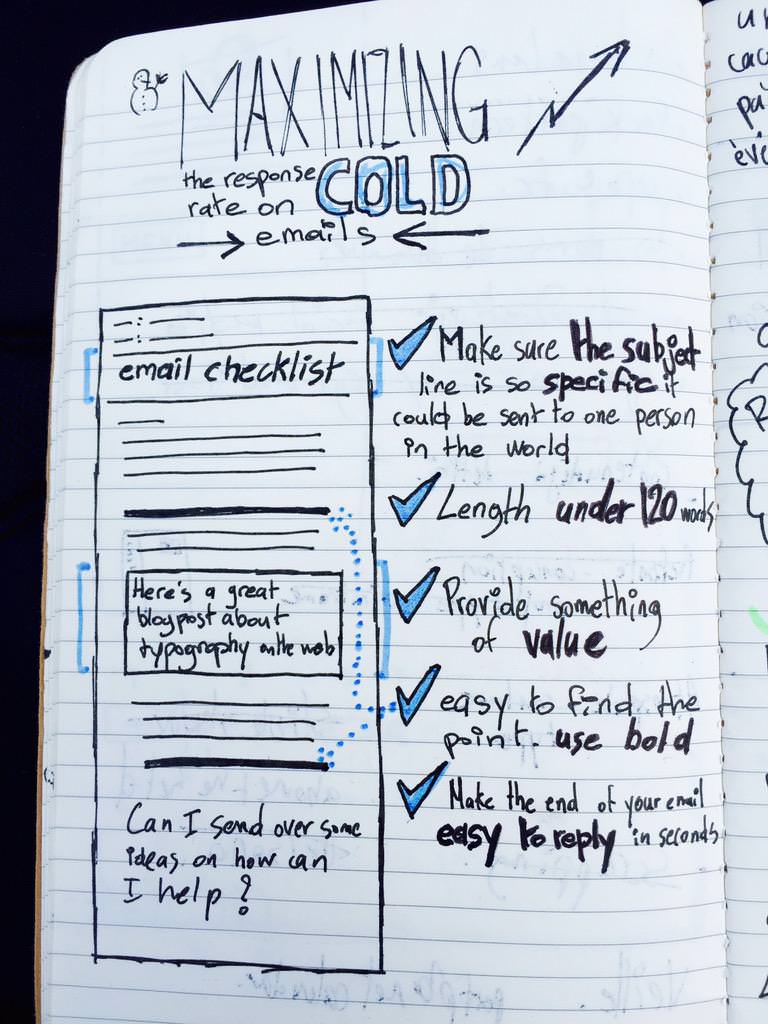 MAXIMIZING
the response COLD
rate on
emails
email checklist
Here's a great
blogpost about
typography on the web
Can I send over some
ideas on how can
I help?
Make sure the subject
line is so specific it
could be sent to one person
in the world
Length under 120 words
Provide something
of value
easy to find the
point. use bold
Make the end of your email
easy to reply in seconds